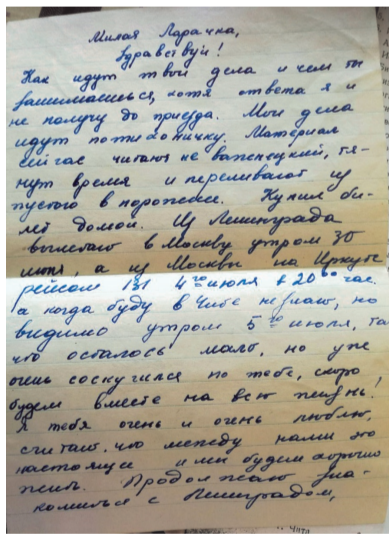 Милая Ларачка,
здравствуй!
Как идут твои дела и чем ты
занимаешься, хотя ответа я и
не получу до приезда. Мои дела
идут потихоничку. Материал
сейчас читают не важнецкий, тя-
нут время и переливают из
пустого в порожнее. Купил би-
лет домой. Из Ленинграда
вылетаю в Москву утром 30
июня, а из Москвы на Иркутс
рейсом 131 4го июля в 20 00 час.
а когда буду в Чите не знаю, но
видимо утром 5го июля, так
что осталось мало, но уже
очень соскучился по тебе, скоро
будем вместе на всю жизнь!
Я тебя очень и очень люблю,
считаю, что между нами это
настоящее и мы будем хорошо
жить. Продолжаю зна-
комиться с Ленинградом,
Чита